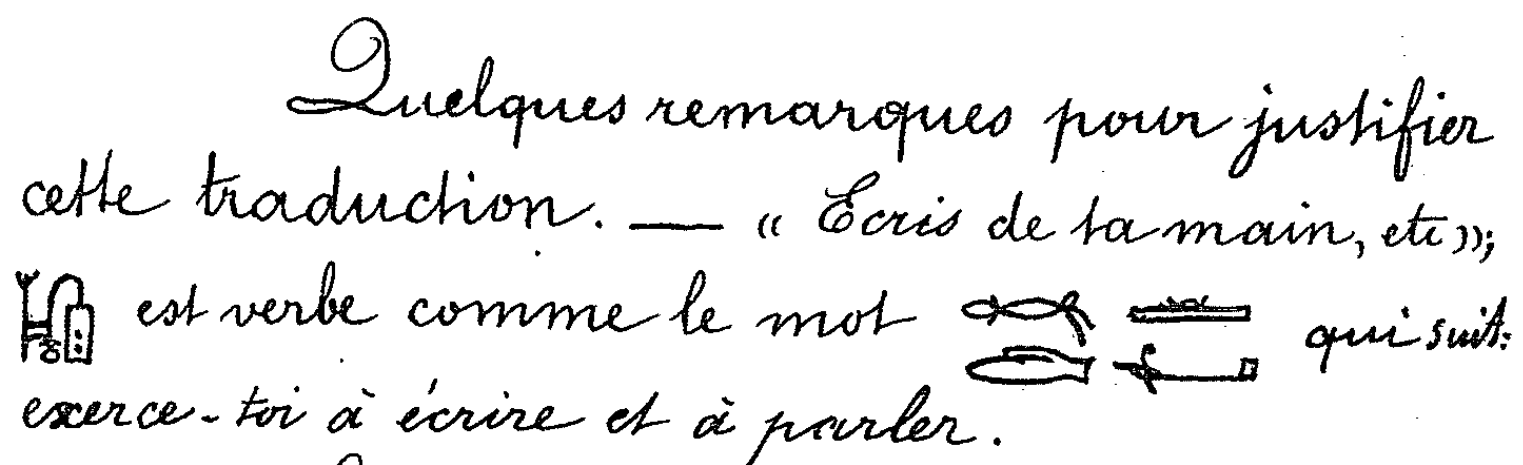 Quelques remarques pour justifier
cette traduction. — « Ecris de ta main, etc »;
𓏞 est verbe comme le mot qui suit:
exerce-toi à écrire et à parler.